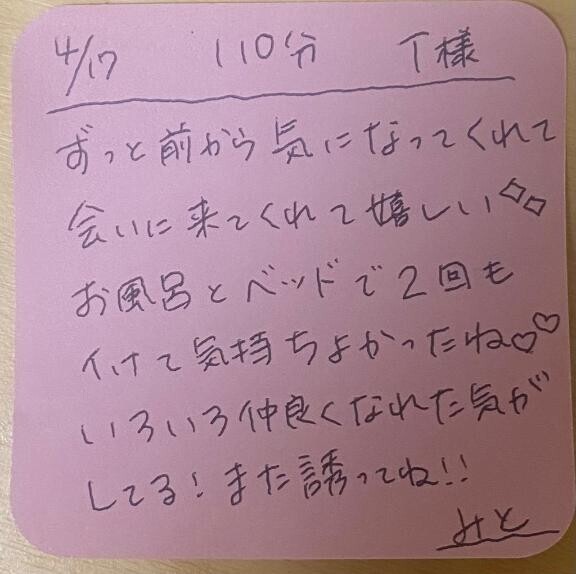 4/17 110分 T様
ずっと前から気になってくれて
会いに来てくれて嬉しい
お風呂とベッドで2回も
イけて気持ちよかったね♡♡
いろいろ仲良くなれた気が
してる!また誘ってね!!
みと